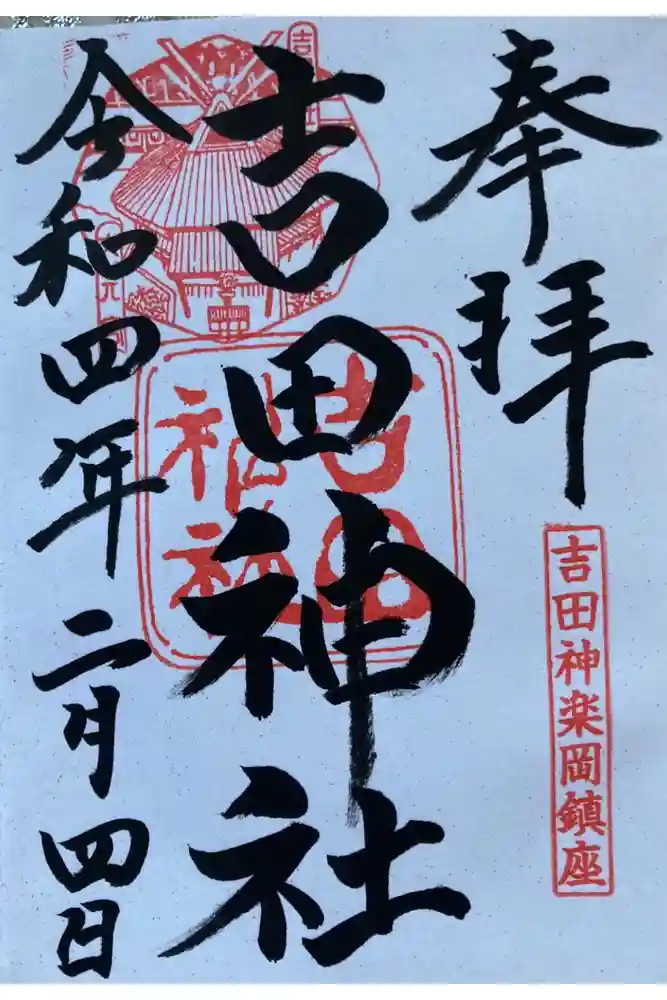 奉拝
吉田神楽岡鎮座
吉田神社
吉田
神社
令和四年二月四日